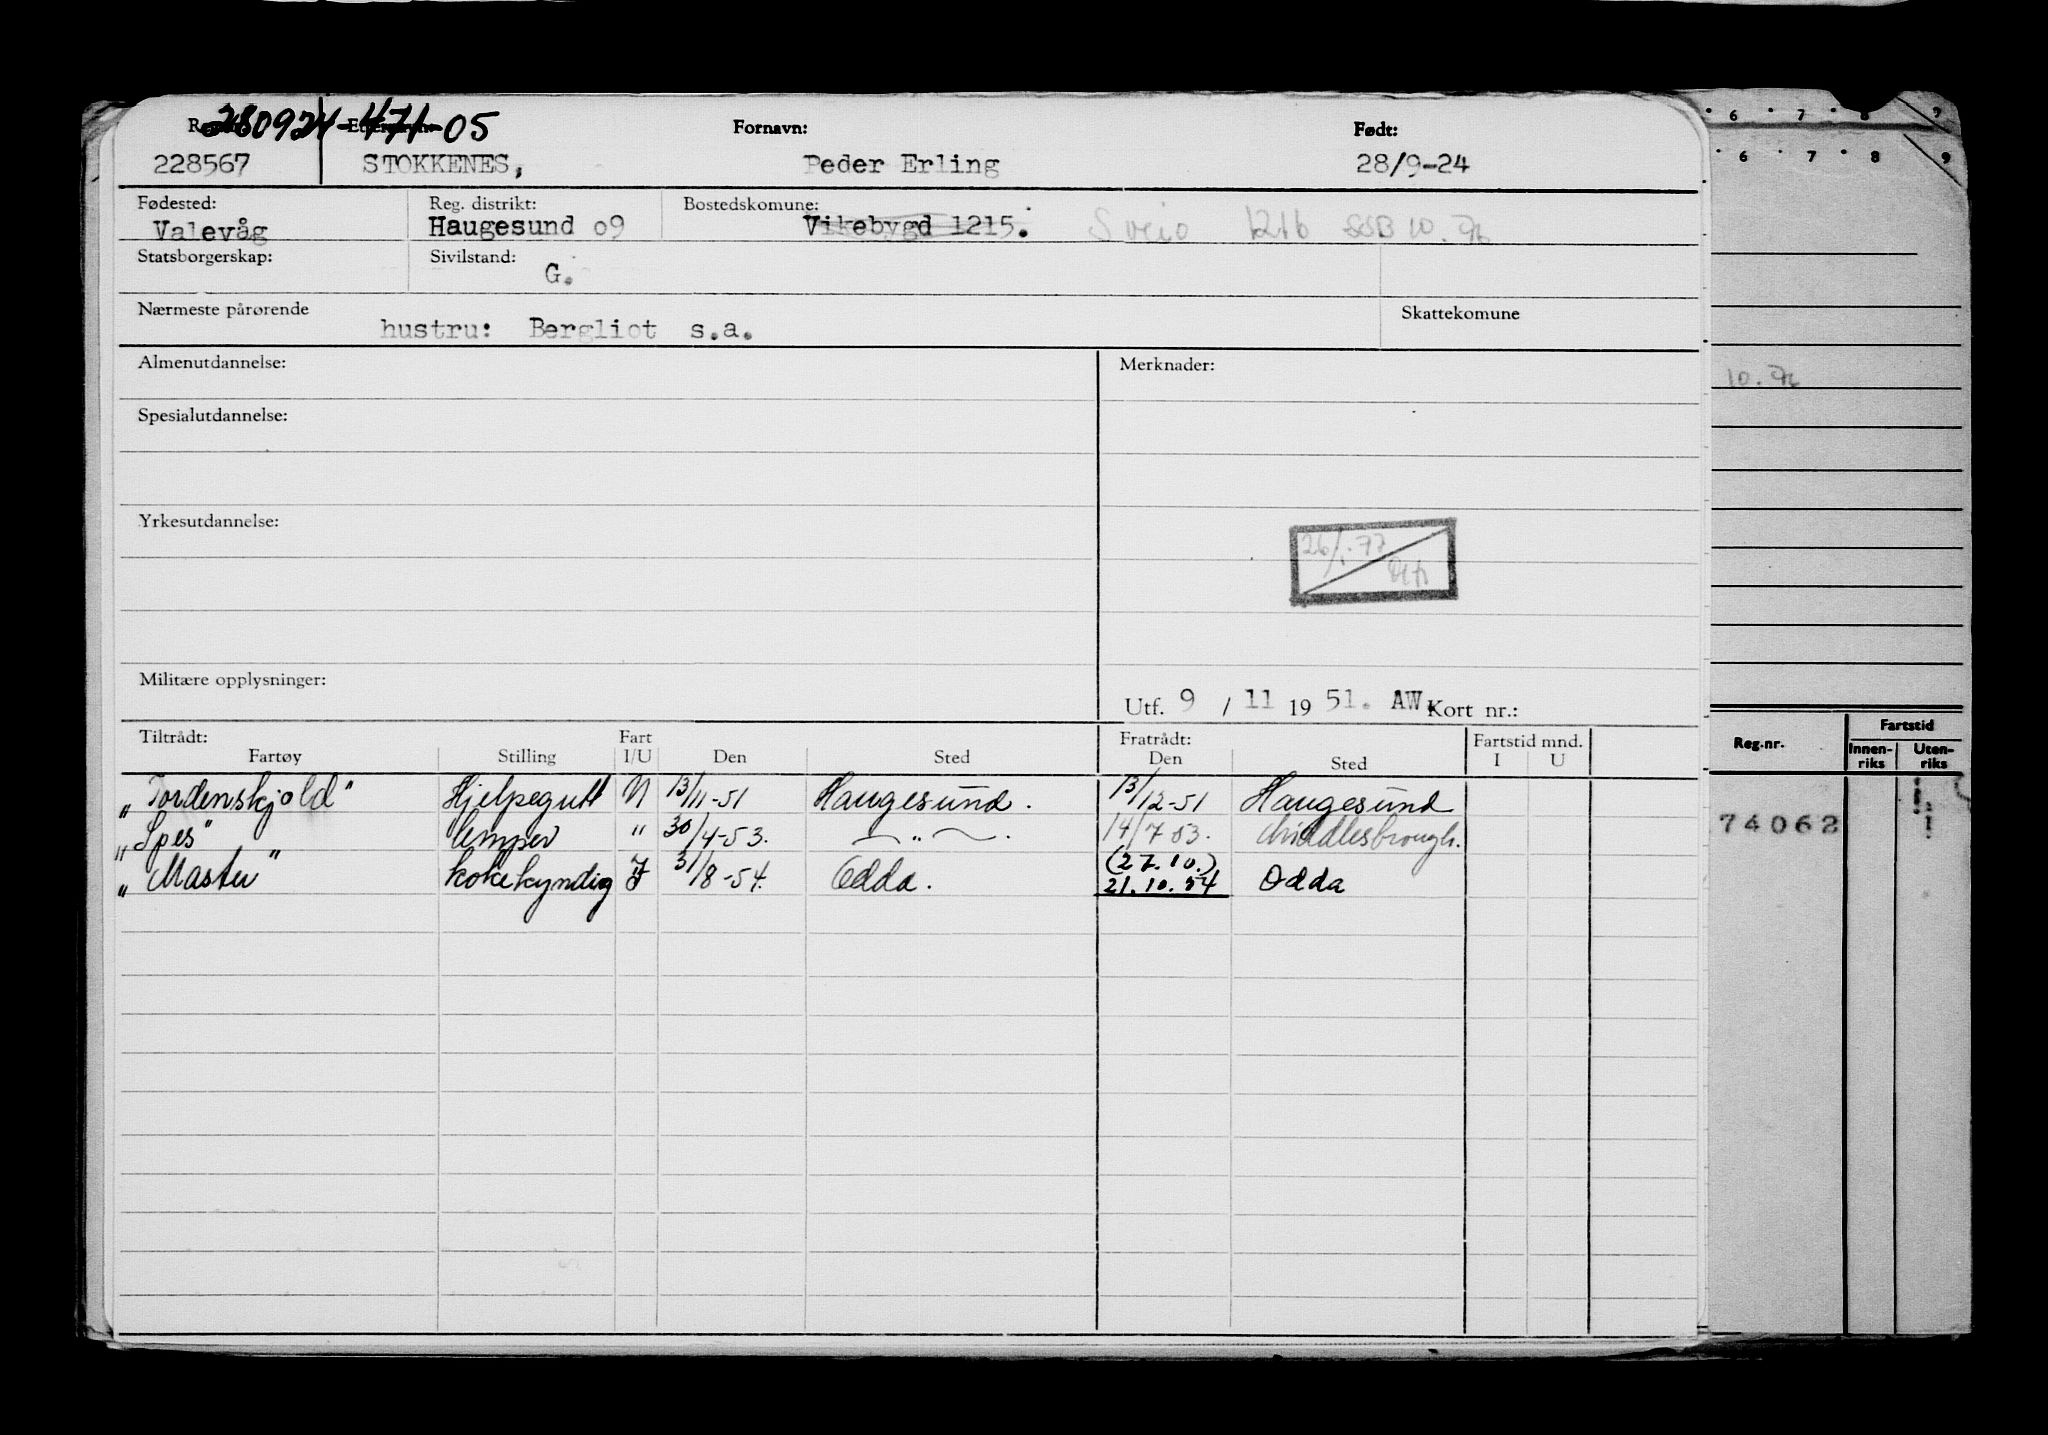 280924-471-05 Fornavn: Født:
228567 STOKKENES, Peder Erling 28/9-24
Fødested: Reg. distrikt: Bostedskomune:
Valevåg Haugesund o9 Vikebygd 1215. Sveio 1216 SSB 10.76
Statsborgerskap: Sivilstand:
G.
Nærmeste pårørende Skattekomune
hustru: Bergliot s.a.
Almenutdannelse: Merknader:
10.76
Spesialutdannelse:
Yrkesutdannelse:
26/1-77
Militære opplysninger:
Utf. 9 / 11 19 51. AW. Kort nr.:
Tiltrådt: Fart Fratrådt: Fartstid mnd.
Fartøy Stilling I/U Den Sted Den Sted I U
"Tordenskjold" Hjelpegutt N 13/11-51 Haugesund. 13/12-51 Haugesund
"Spes" lemper " 30/4-53. — " — . 14/7 53. Middlesbrough.
"Master" kokekyndig I 31/8-54. Odda. (27.10.)
21.10.54 Odda
6 7 8 9
6 7 8 9
Reg.nr. Fartstid
Innen-riks Uten-riks
74062